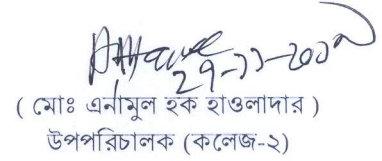 ২৭-১১-২০১৭
( মোঃ এনামুল হক হাওলাদার )
উপপরিচালক (কলেজ-২)